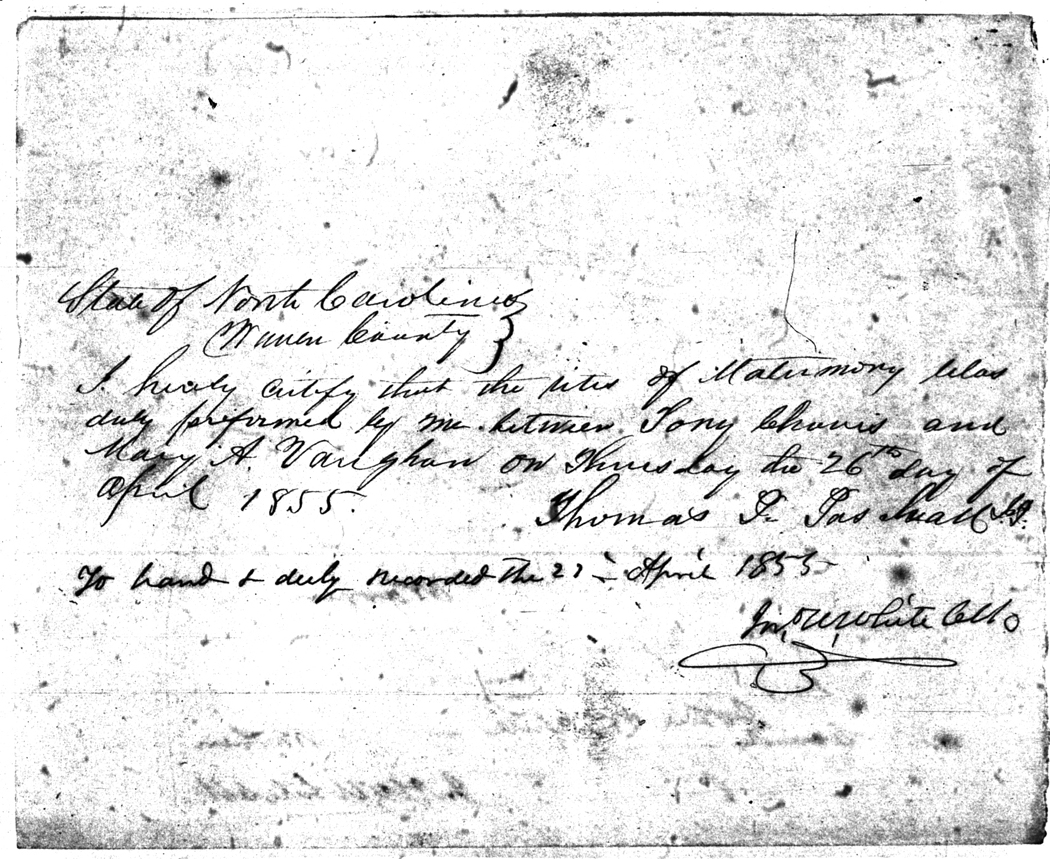 State of North Carolina
Warren County }
I hereby certify that the rites of Matrimony Was
duly performed by me between Tony Chavis and
Mary A. Vaughan on Thursday the 26th day of
April 1855.
Thomas P. Paschall J.P.
To hand & duly recorded the 27 April 1855
Jno. W. White Clk